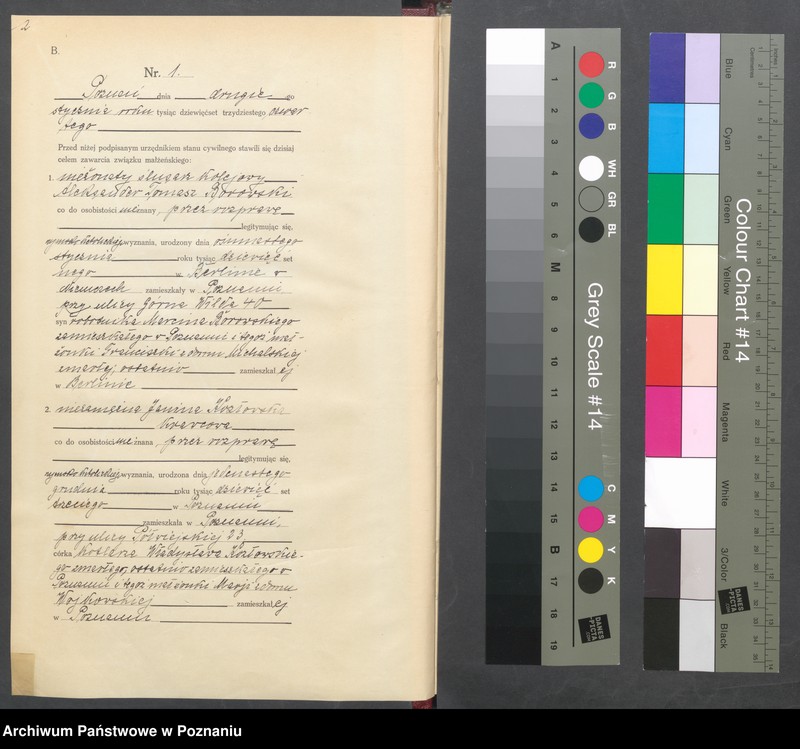 2
B.
Nr. 1.
Poznań dnia drugiego
stycznia roku tysiąc dziewięćset trzydziestego czwar
tego
Przed niżej podpisanym urzędnikiem stanu cywilnego stawili się dzisiaj
celem zawarcia związku małżeńskiego:
1. nieżonaty ślusarz kolejowy
Aleksander Tomasz Borowski
co do osobistości nieznany, przez rozprawę
legitymując się,
rzymsko katolickiej wyznania, urodzony dnia ósmnastego
stycznia roku tysiąc dziewięć set
w Berlinie w
Niemczech zamieszkały w Poznaniu
przy ulicy Górna Wilda 40
syn robotnika Marcina Borowskiego
zamieszkałego w Poznaniu i tegoż mał-
żonki Franciszki z domu Michalskiej
zmarłej, ostatnio zamieszkałej
w Berlinie
2. niezamężna Janina Kozłowska
krawcowa
co do osobistości nieznana, przez rozprawę
legitymując się,
rzymsko katolickiej wyznania, urodzona dnia jedenastego
grudnia roku tysiąc dziewięć set
trzeciego w Poznaniu
zamieszkała w Poznaniu,
przy ulicy Półwiejskiej 33,
córka Władysława Kozłowskie-
go zmarłego, ostatnio zamieszkałego w
Poznaniu i tegoż małżonki Marji z domu
Wojtkowskiej zamieszkałej
w Poznaniu
A 1 2 3 4 5 6 M 8 9 10 11 12 13 14 15 B 17 18 19
R G B WH GR BL C M Y K
Grey Scale #14
DANES
PICTA
.COM
Blue Cyan Green Yellow Red Magenta White 3/Color Black
Colour Chart #14
DANES
PICTA
.COM
Inches
Centimetres
Archiwum Państwowe w Poznaniu